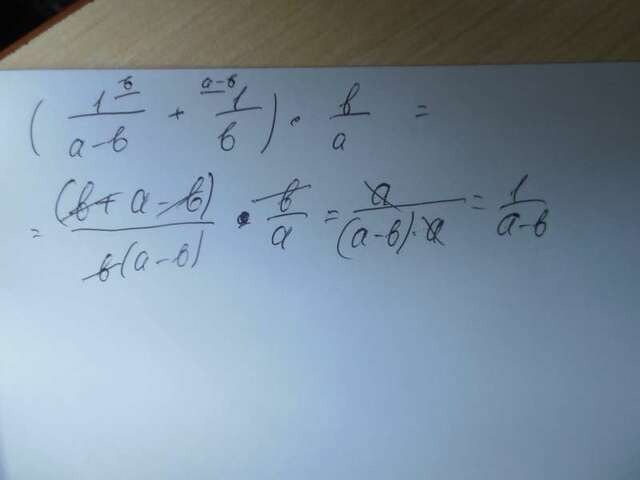 ( 1 ᵇ / a-b + ᵃ⁻ᵇ 1 / b ) · b / a =
= (b+a-b) / b(a-b) · b / a = a / (a-b)·a = 1 / a-b